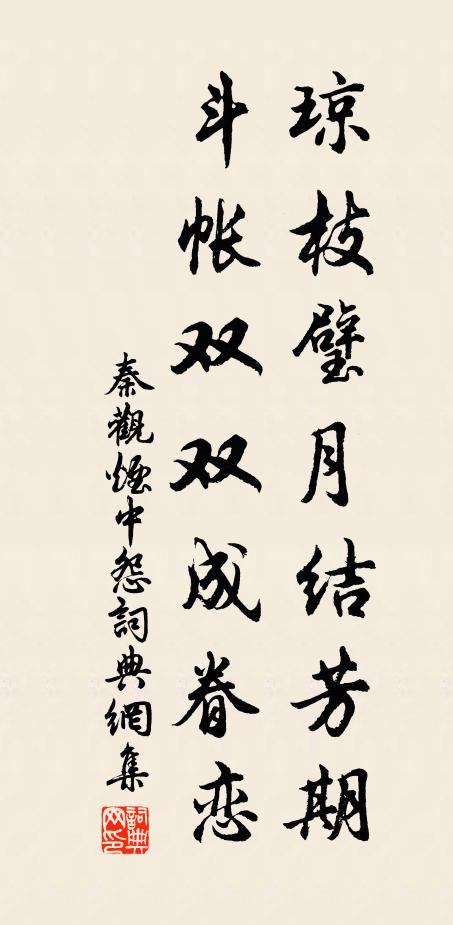 琼枝璧月结芳期
斗帐双双成眷恋
秦觀煙中怨詞典網集
詞典网印